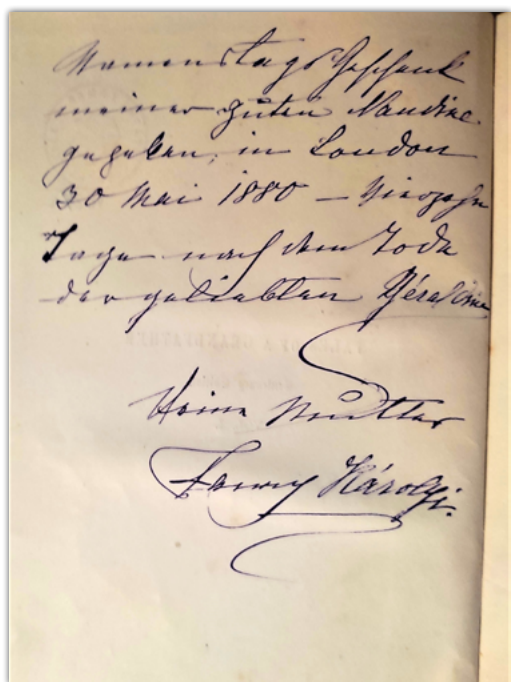 Namenstags Geschenk
meiner guten Nandine
gegeben, in London
30 Mai 1880 — Vierzehn
Tage nach dem Tode
der geliebten Géraldine
Deine Mutter
Fanny Károlyi.